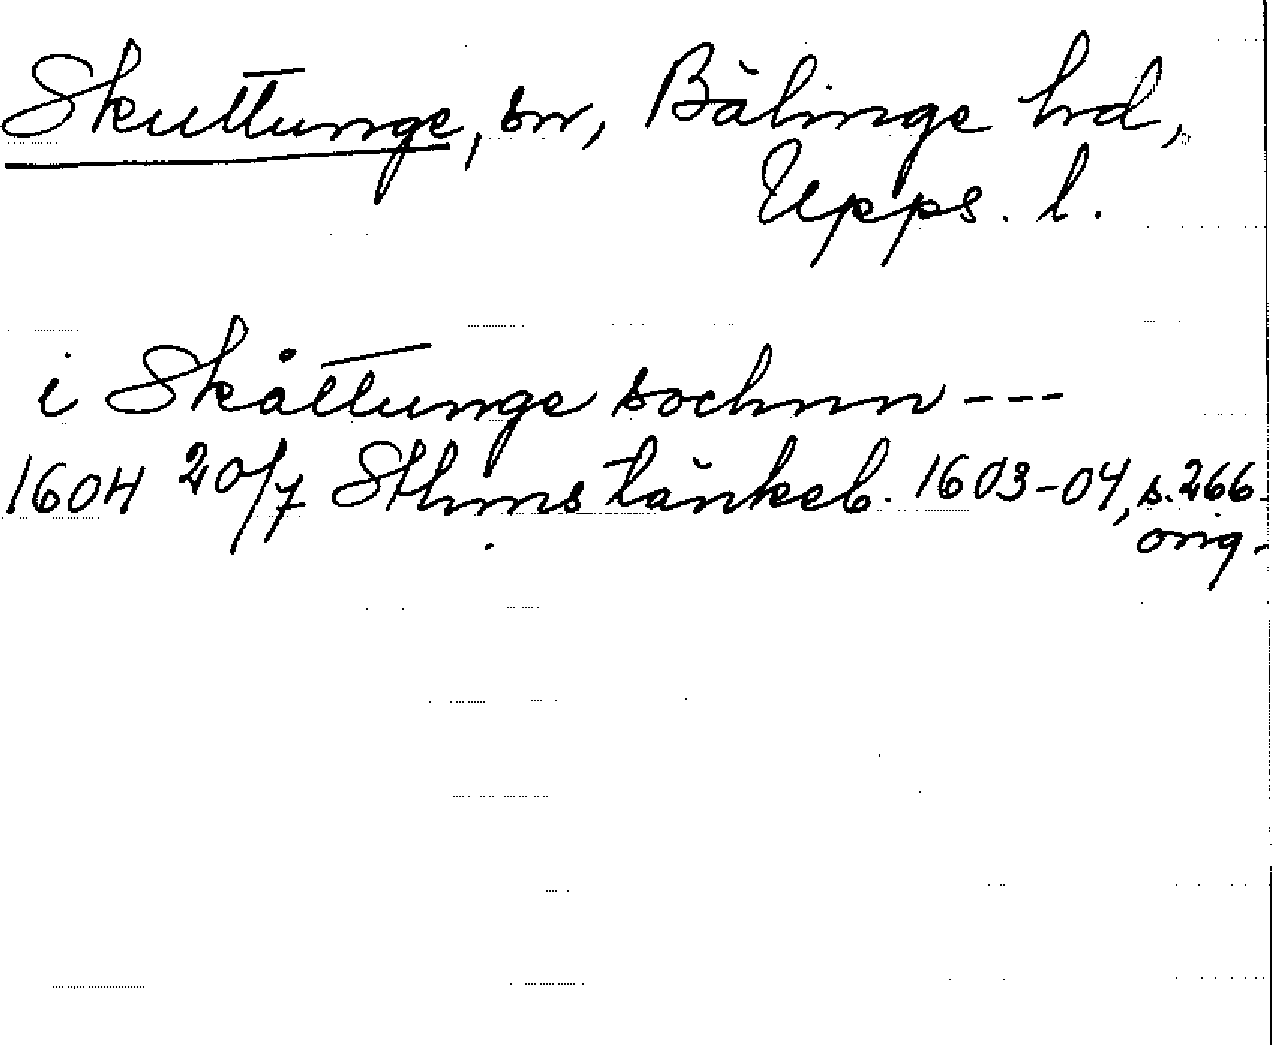 Skuttunge, sn, Bälinge hd,
Upps. l.
i Skåttunge sochnn ---
1604 20/7 Sthms tänkeb. 1603-04, s. 266.
orig.